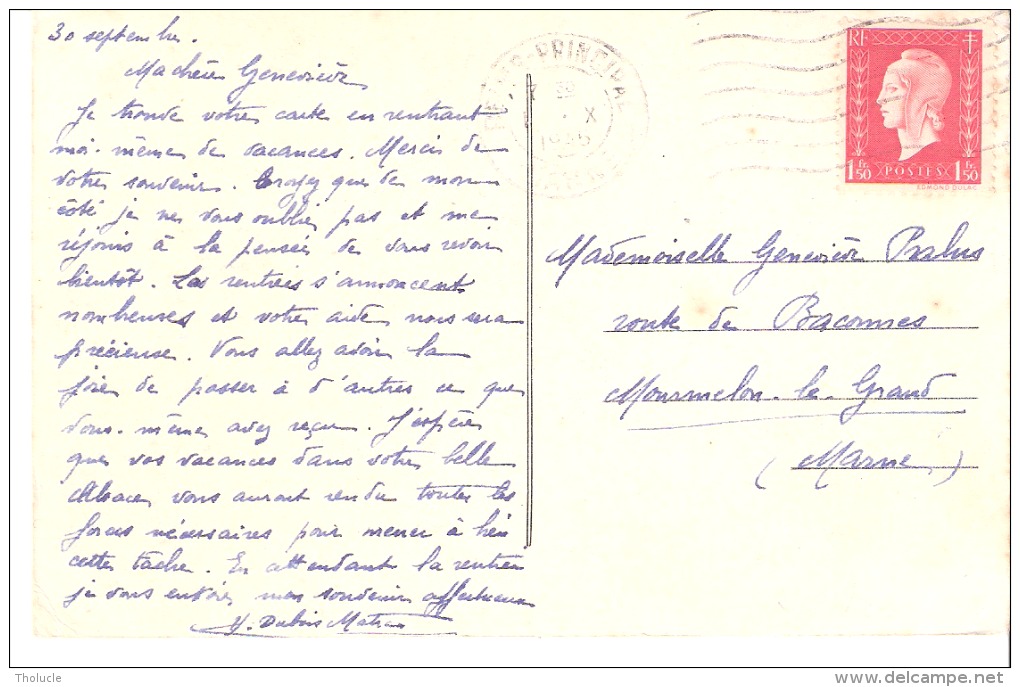 30 septembre.
Ma chère Geneviève
Je trouve votre carte en rentrant
moi-même de vacances. Merci de
votre souvenir. Croyez que de mon
côté je ne vous oublie pas et me
réjouis à la pensée de vous revoir
bientôt. Les rentrées s'annoncent
nombreuses et votre aide nous sera
précieuse. Vous allez avoir la
joie de passer à d'autres ce que
vous-même avez reçu. J'espère
que vos vacances dans votre belle
Alsace, vous auront rendu toutes les
forces nécessaires pour mener à bien
cette tâche. En attendant la rentrée
je vous envoie, mon souvenir affectueux
Y. Dubois
PRINCIPAL
X
RF
1 Fr. 50
POSTES
1 Fr. 50
EDMOND DULAC
Mademoiselle Geneviève
route de Baconnes
Mourmelon-le-Grand
(Marne)
Tholucle
www.delcampe.net